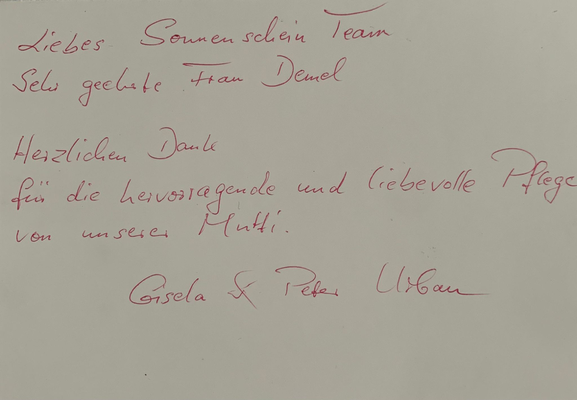 Liebes Sonnenschein Team
Sehr geehrte Frau Demel
Herzlichen Dank
für die hervorragende und liebevolle Pflege
von unserer Mutti.
Gisela & Peter Urban